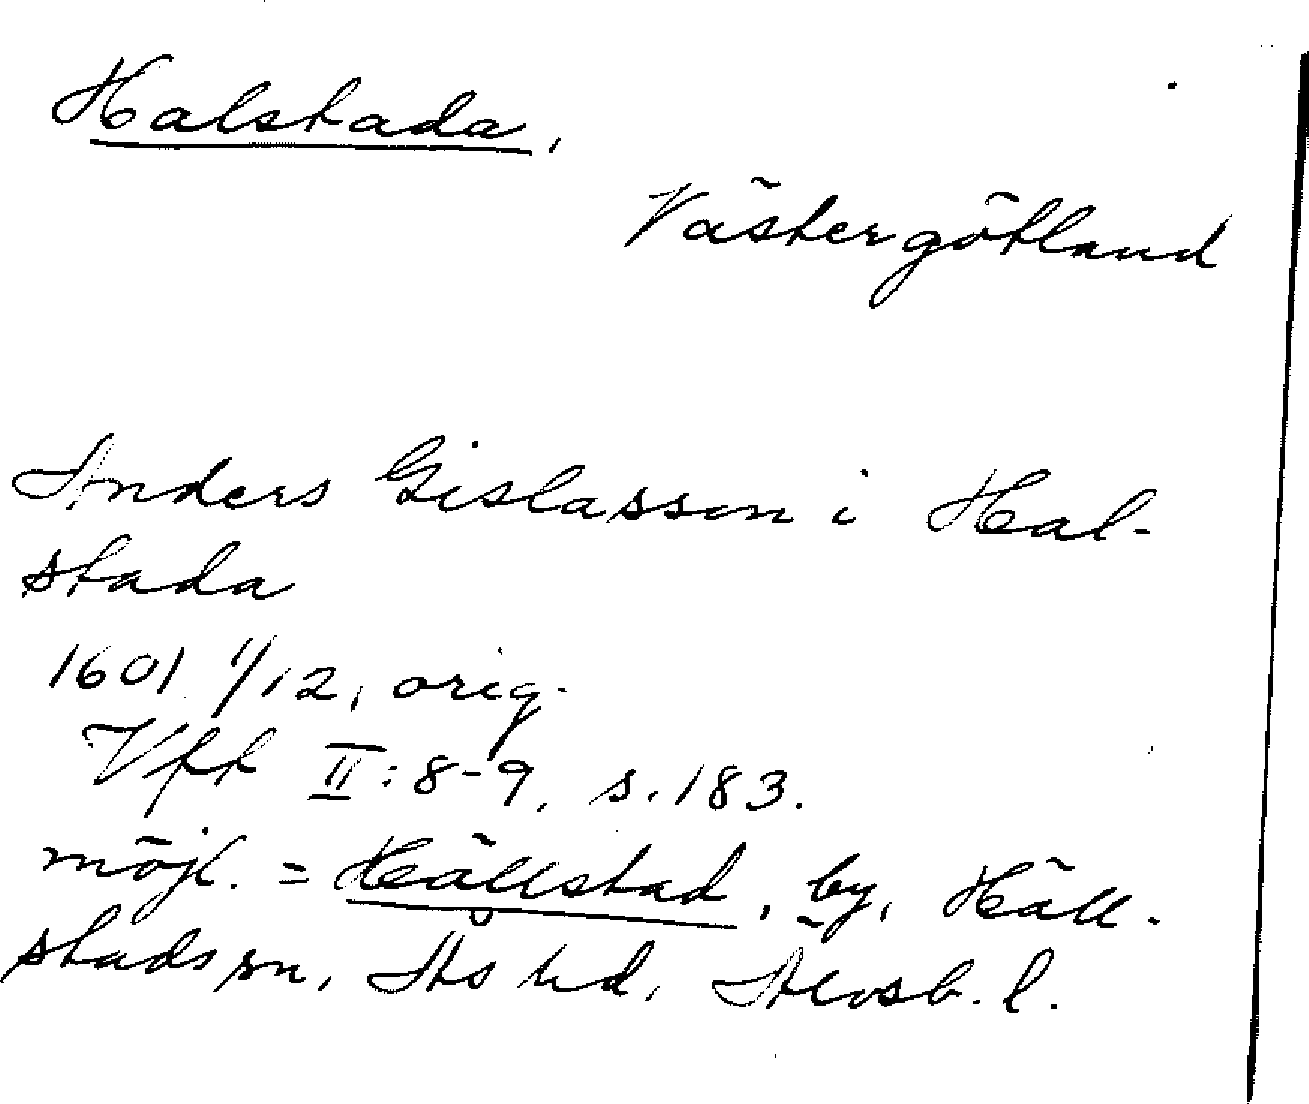 Halstada,
Västergötland
Anders Gislasson i Hal-
stada
1601 1/12, orig.
Vfft II:8-9, s. 183.
möjl. = Hällstad, by, Häll-
stads sn, Ås hd, Älvsb. l.